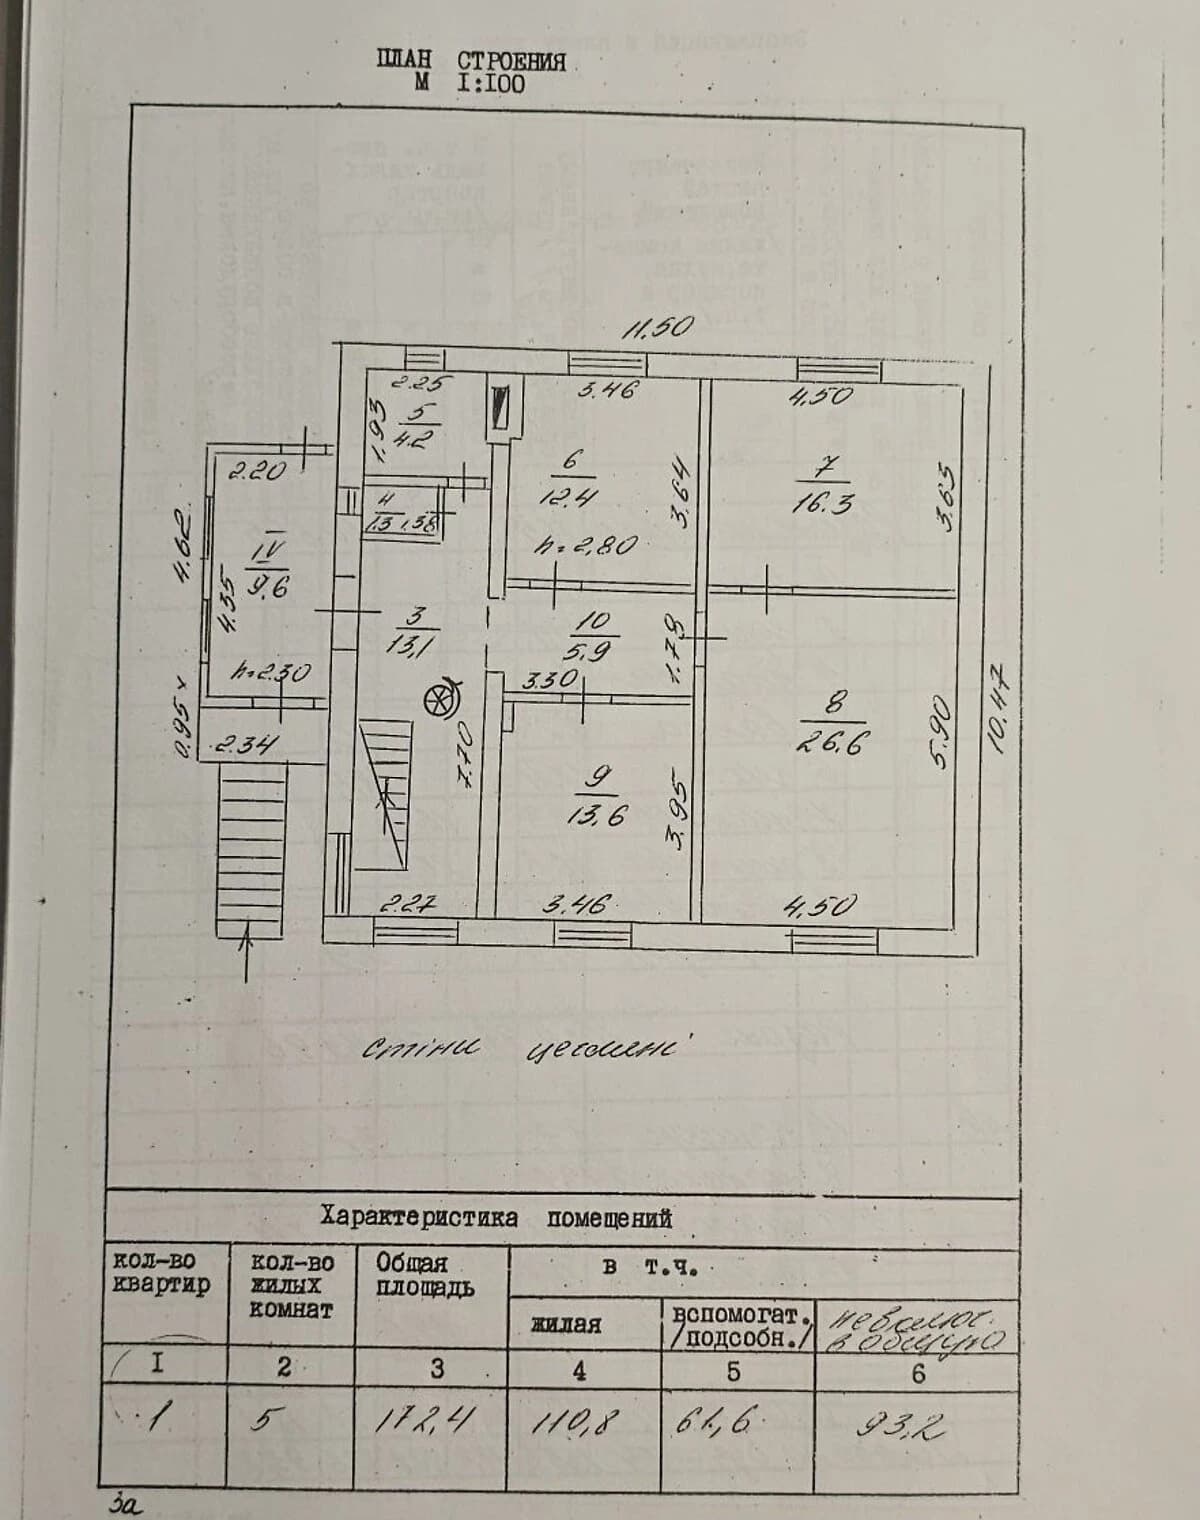 ПЛАН СТРОЕНИЯ
М I:I00
11.50
2.25
3.46
4.50
1.93
5
4.2
2.20
6
12.4
3.64
7
16.3
3.65
4
1.3 1.38
4.62
IV
9.6
4.35
h=2,80
3
13,1
10
5.9
1.78
h=2.30
3.30
0.95
2.34
7.70
8
26.6
5.90
10.47
9
13,6
3.95
2.27
3.46
4.50
стіни цегляні
Характеристика помещений
кол-во квартир
кол-во жилых комнат
Общая площадь
в т.ч.
жилая
вспомогат. /подсобн./
невключ. в общую
I 2 3 4 5 6
1 5 172,4 110,8 61,6 93,2
За